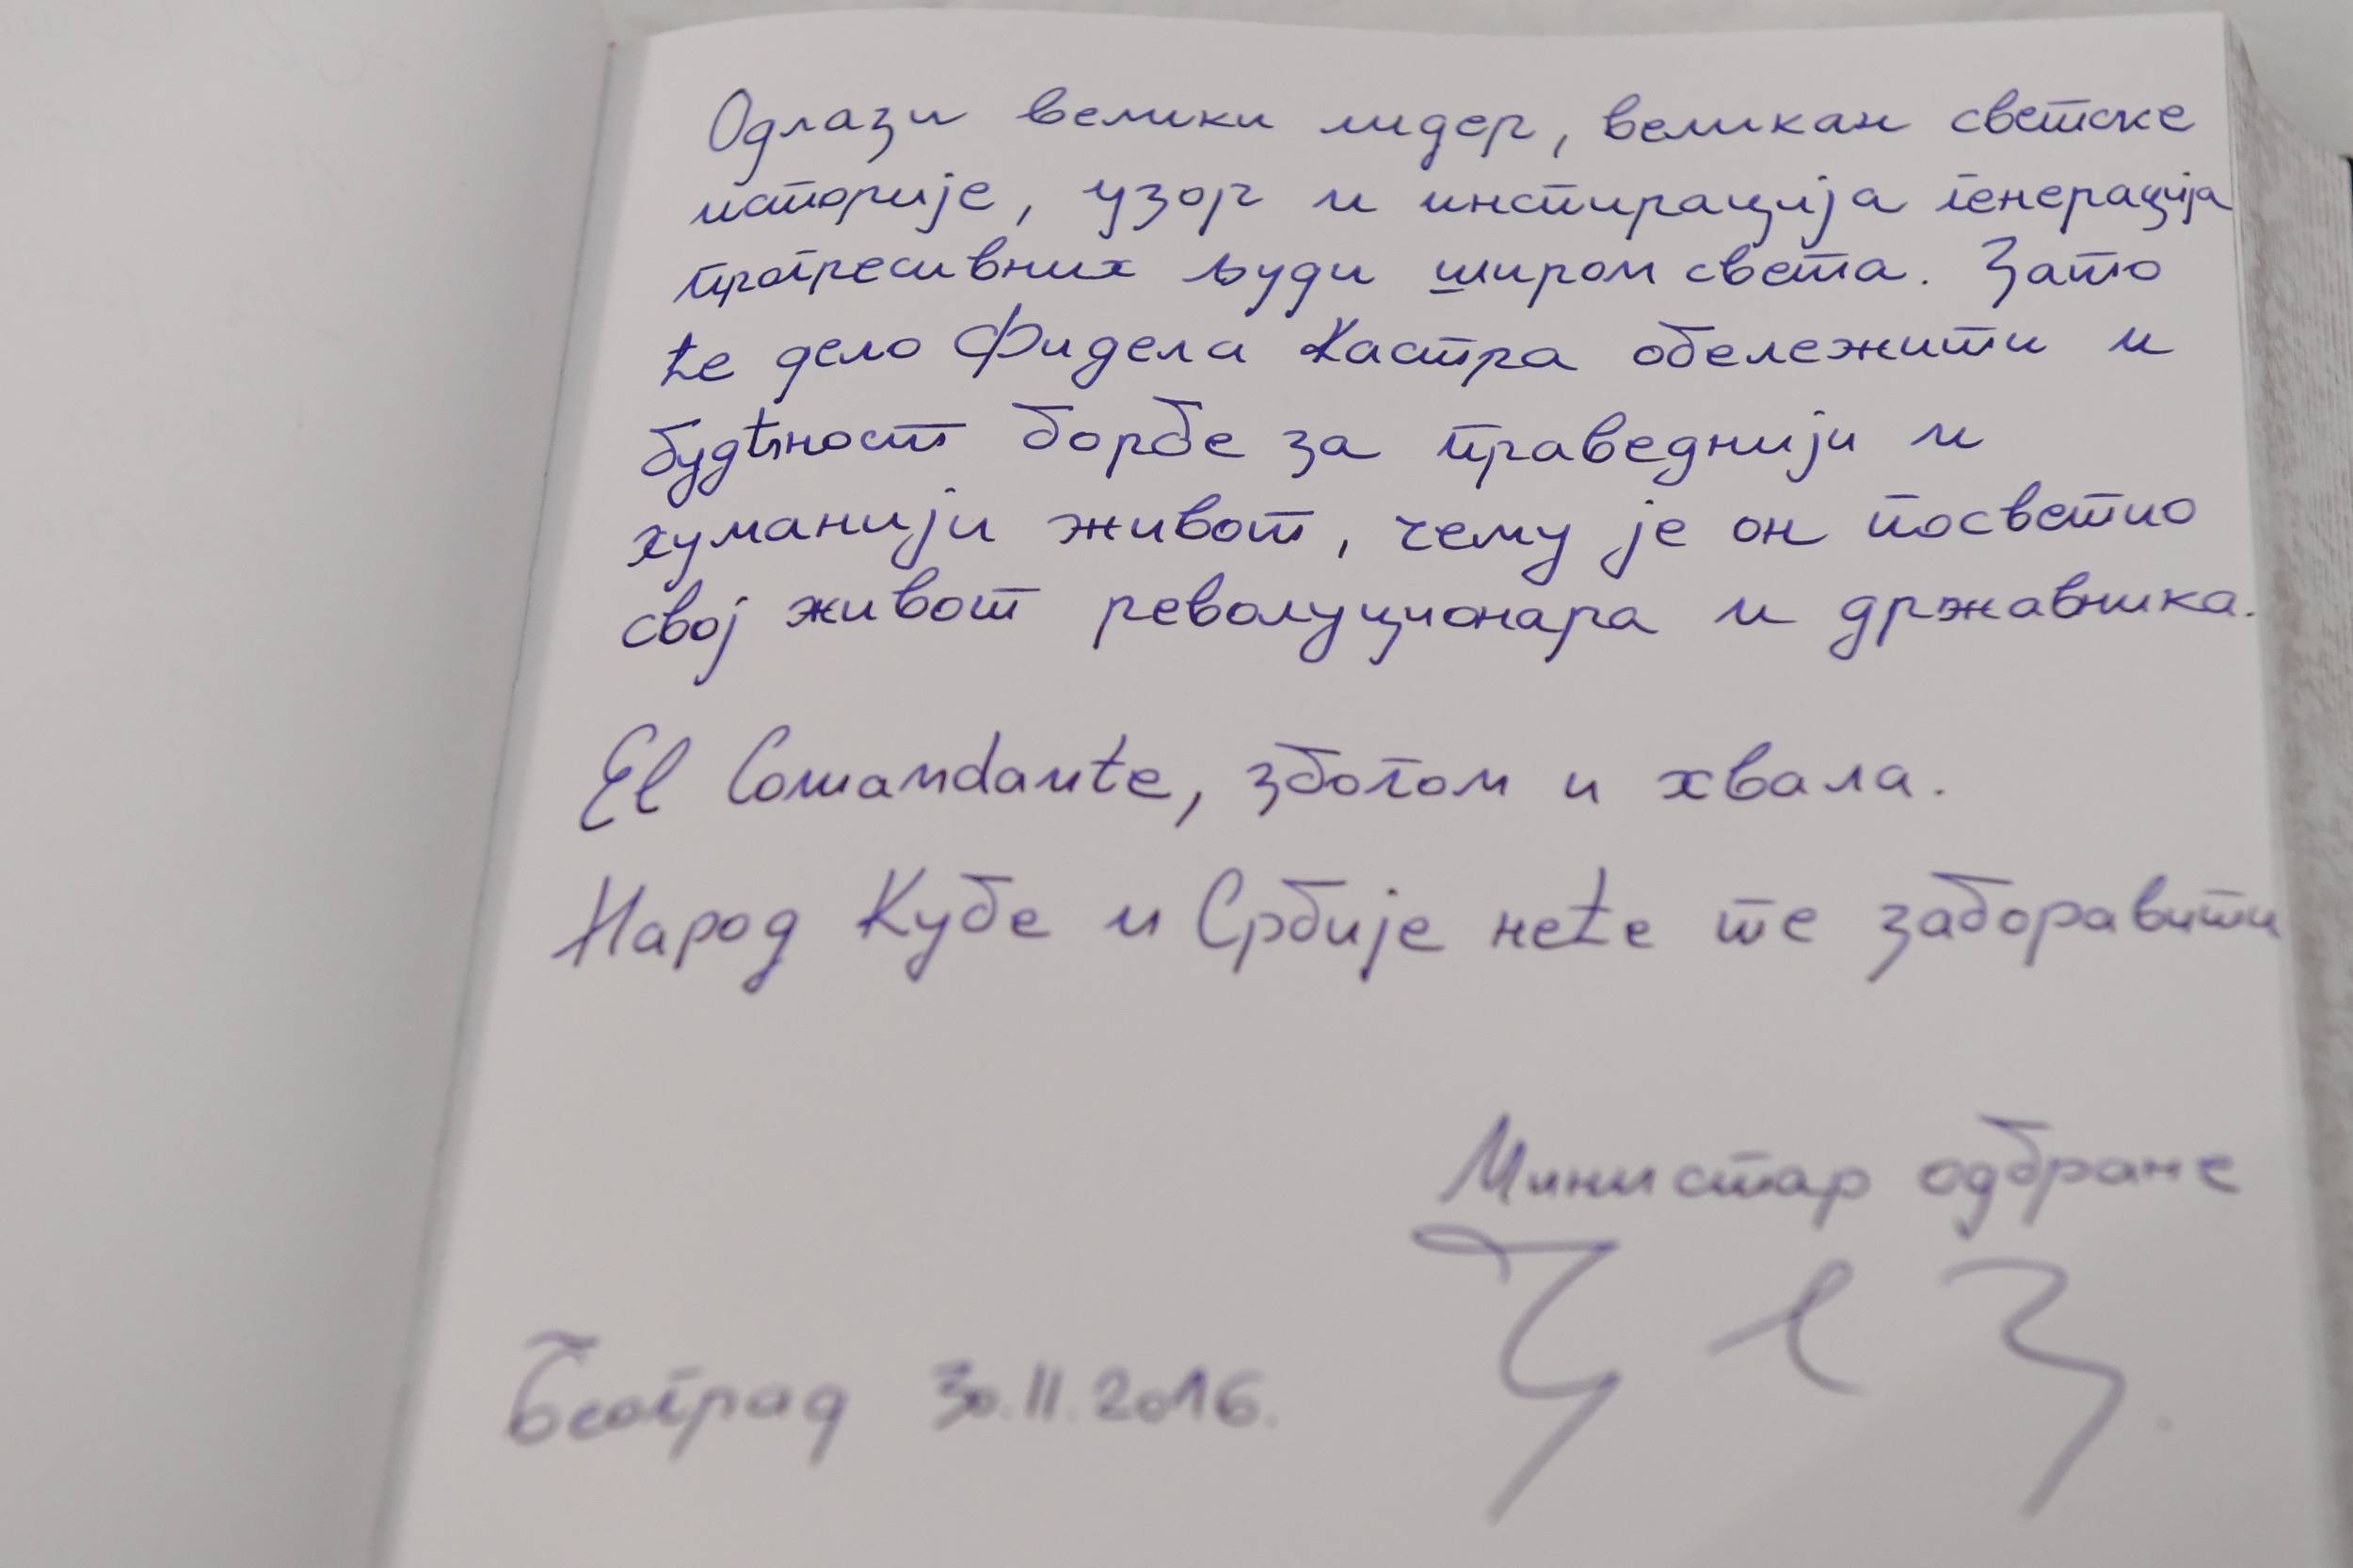 Одлази велики лидер, великан светске
историје, узор и инспирација генерација
прогресивних људи широм света. Зато
ће дело Фидела Кастра обележити и
будћност борбе за праведнији и
хуманији живот, чему је он посветио
свој живот револуционара и државника.
El Comandante, збогом и хвала.
Народ Кубе и Србије неће те заборавити
Министар одбране
Београд 30.11.2016.